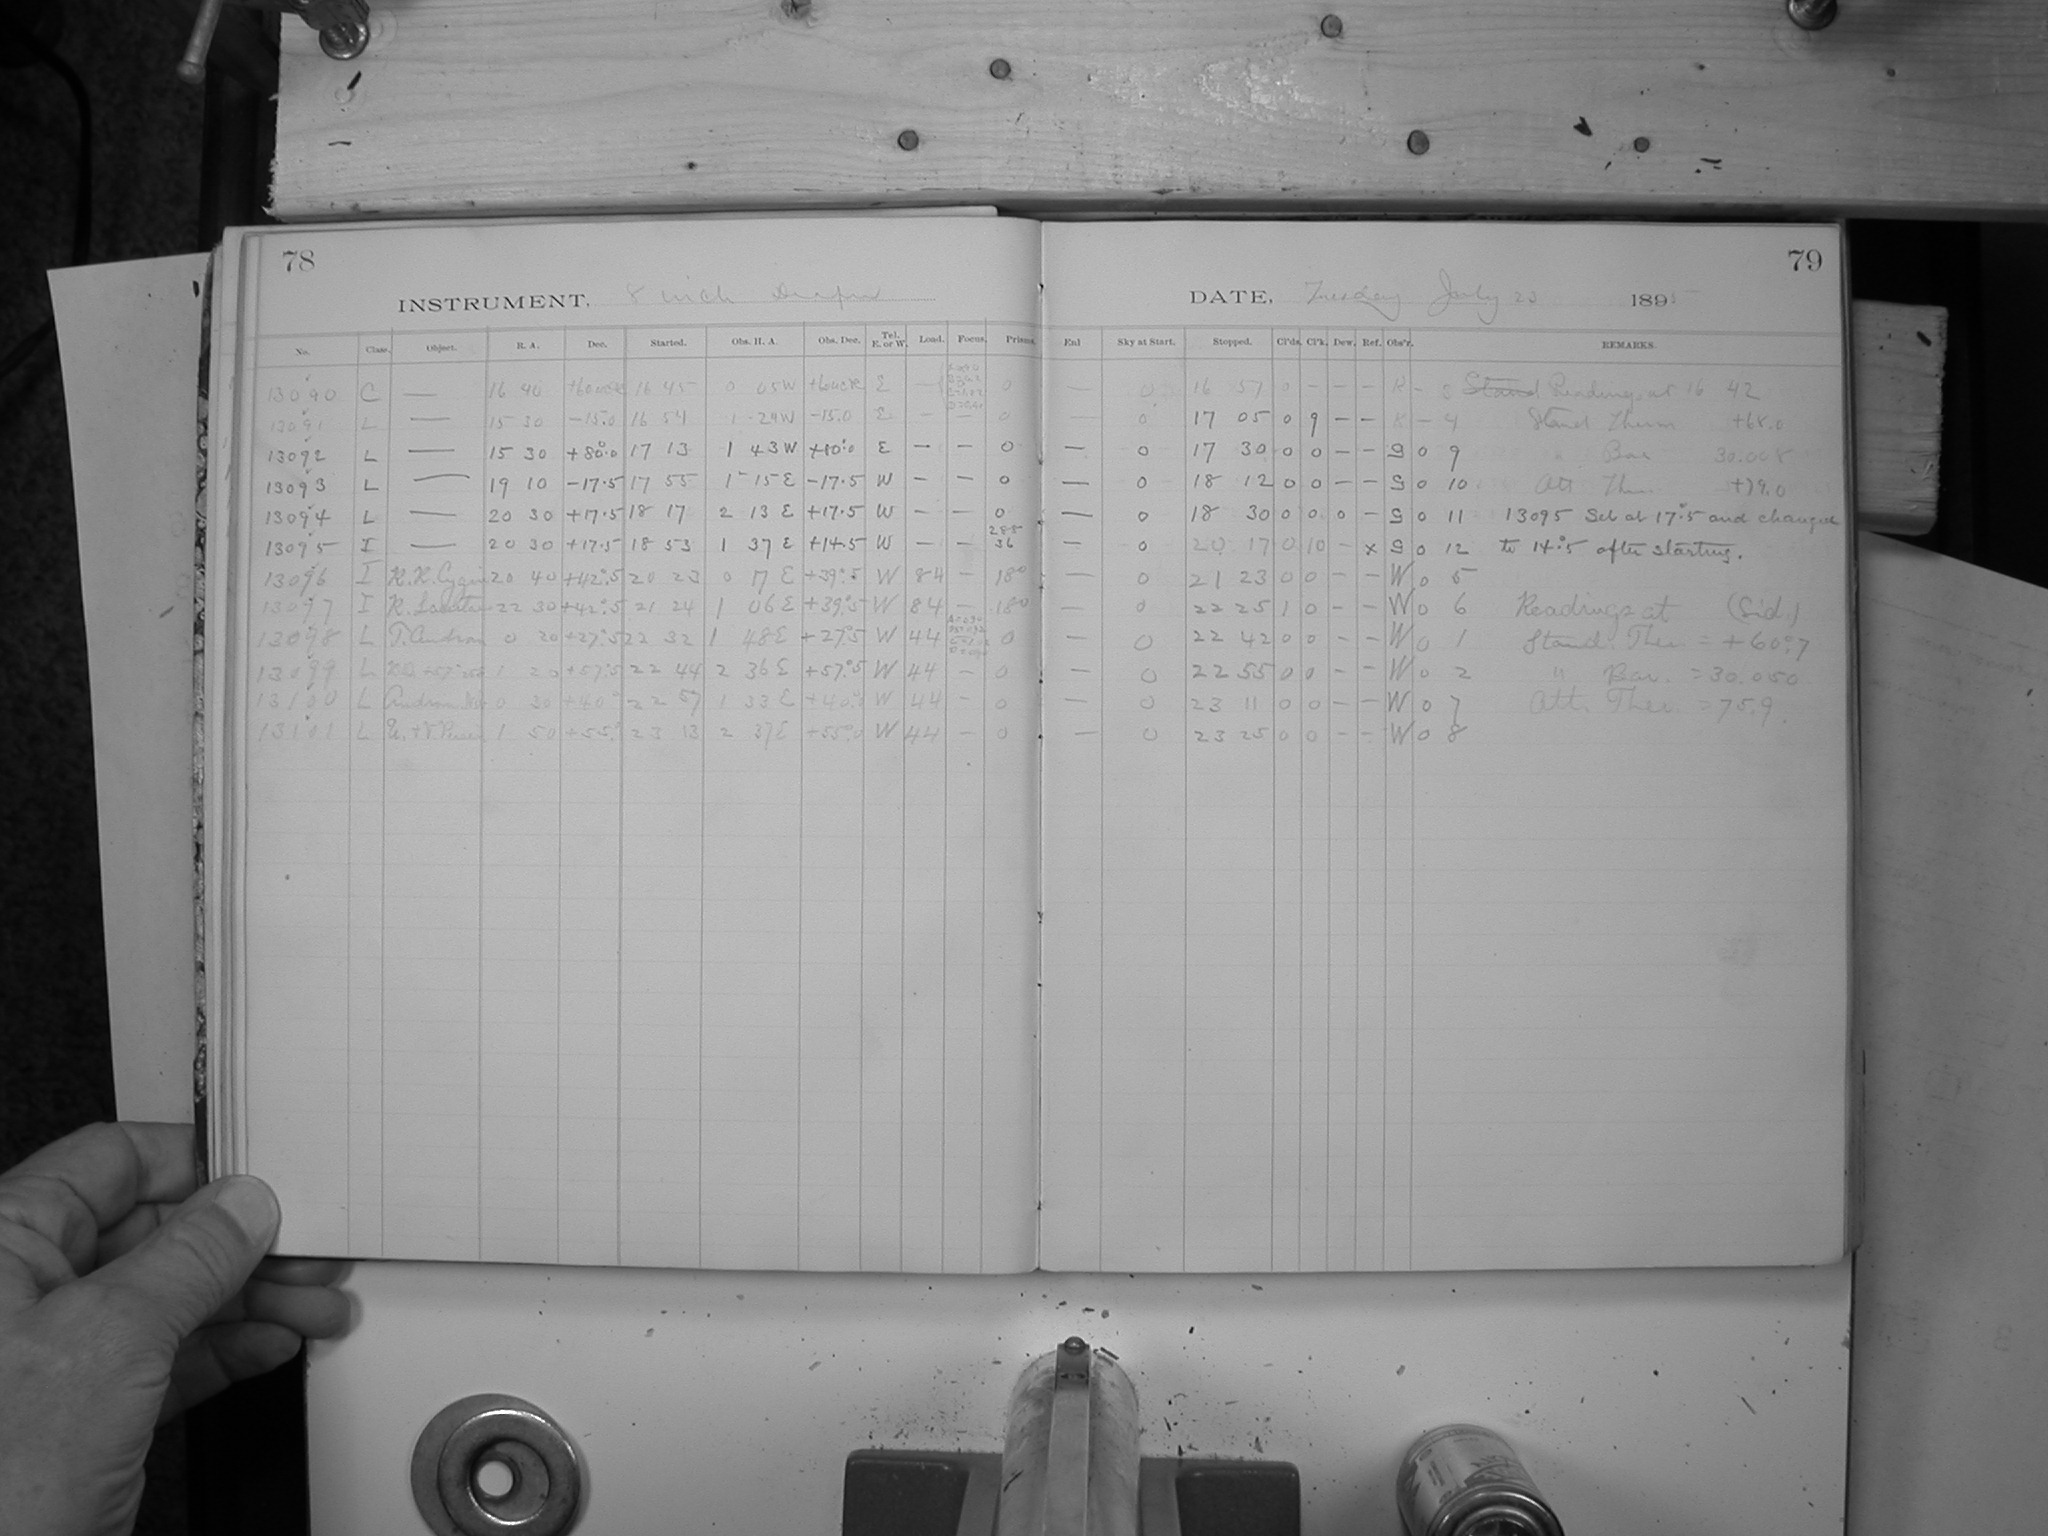 78
INSTRUMENT, 8 inch Draper
No. Class. Object. R. A. Dec. Started. Obs. H. A. Obs. Dec. Tel. E. or W. Load. Focus. Prisms.
13090 C — 16 40 16 45 0 05W E 0
13091 L — 15 30 -15.0 16 54 1 24W -15.0 E — — 0
13092 L — 15 30 +80°.0 17 13 1 43W +80°.0 E — — 0
13093 L — 19 10 -17.5 17 55 1 15 E -17.5 W — — 0
13094 L — 20 30 +17.5 18 17 2 13 E +17.5 W — — 0
13095 I — 20 30 +17.5 18 53 1 37 E +14.5 W — — 36
13096 I R.R. Cygni 20 40 +42°.5 20 23 0 17 E +39°.5 W 84 — 180
13097 I 22 30 +42°.5 21 24 1 06 E +39°.5 W 84 — 180
13098 L T. Androm 0 20 +27°.5 22 32 1 48 E +27°.5 W 44 0
13099 L 1 20 +57°.5 22 44 2 36 E +57°.5 W 44 — 0
13100 L 0 30 +40° 22 57 1 33 E +40°.0 W 44 — 0
13101 L 1 50 +55° 23 13 2 37 E +55°.0 W 44 — 0
79
DATE, Tuesday July 23 1895
Enl Sky at Start. Stopped. Cl'ds. Cl'k. Dew. Ref. Obs'r. REMARKS.
— 0 16 57 0 — — — R — 3 Stand Readings at 16 42
— 0 17 05 0 9 — — R — 4 Stand Therm +68.0
— 0 17 30 0 0 — — S 0 9 " Bar 30.008
— 0 18 12 0 0 — — S 0 10 Att. Ther. +79.0
— 0 18 30 0 0 0 — S 0 11 13095 Set at 17°.5 and changed
— 0 20 17 0 10 — x S 0 12 to 14°.5 after starting.
— 0 21 23 0 0 — — W 0 5
— 0 22 25 1 0 — — W 0 6 Readings at (Sid.)
— 0 22 42 0 0 — — W 0 1 Stand. Ther. = +60°.7
— 0 22 55 0 0 — — W 0 2 " Bar. = 30.050
— 0 23 11 0 0 — — W 0 7 Att. Ther. = 75.9.
— 0 23 25 0 0 — — W 0 8